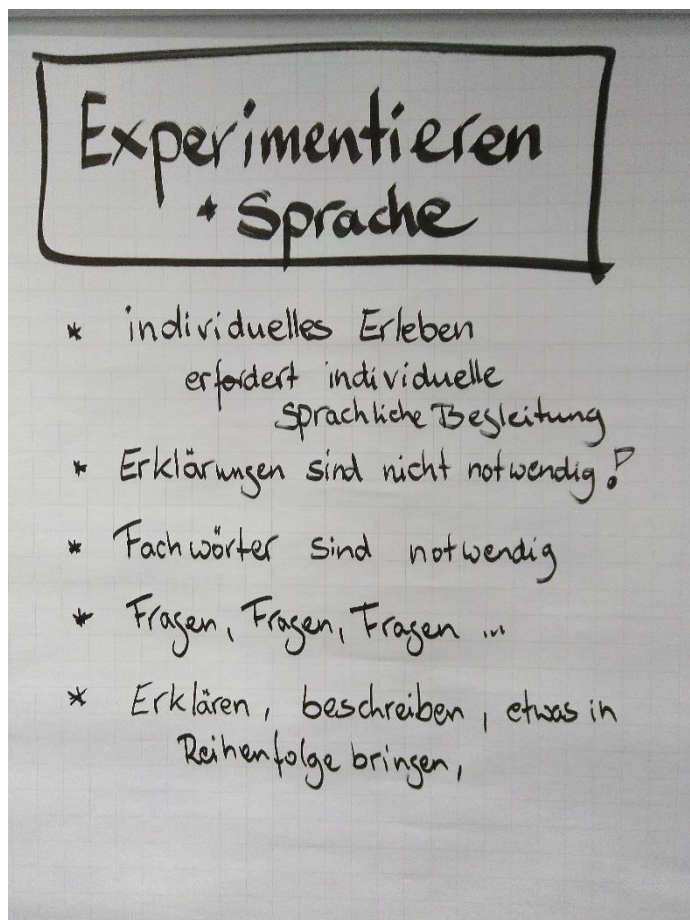 Experimentieren
+ Sprache
* individuelles Erleben
erfordert individuelle
sprachliche Begleitung
* Erklärungen sind nicht notwendig!
* Fachwörter sind notwendig
* Fragen, Fragen, Fragen ...
* Erklären, beschreiben, etwas in
Reihenfolge bringen,